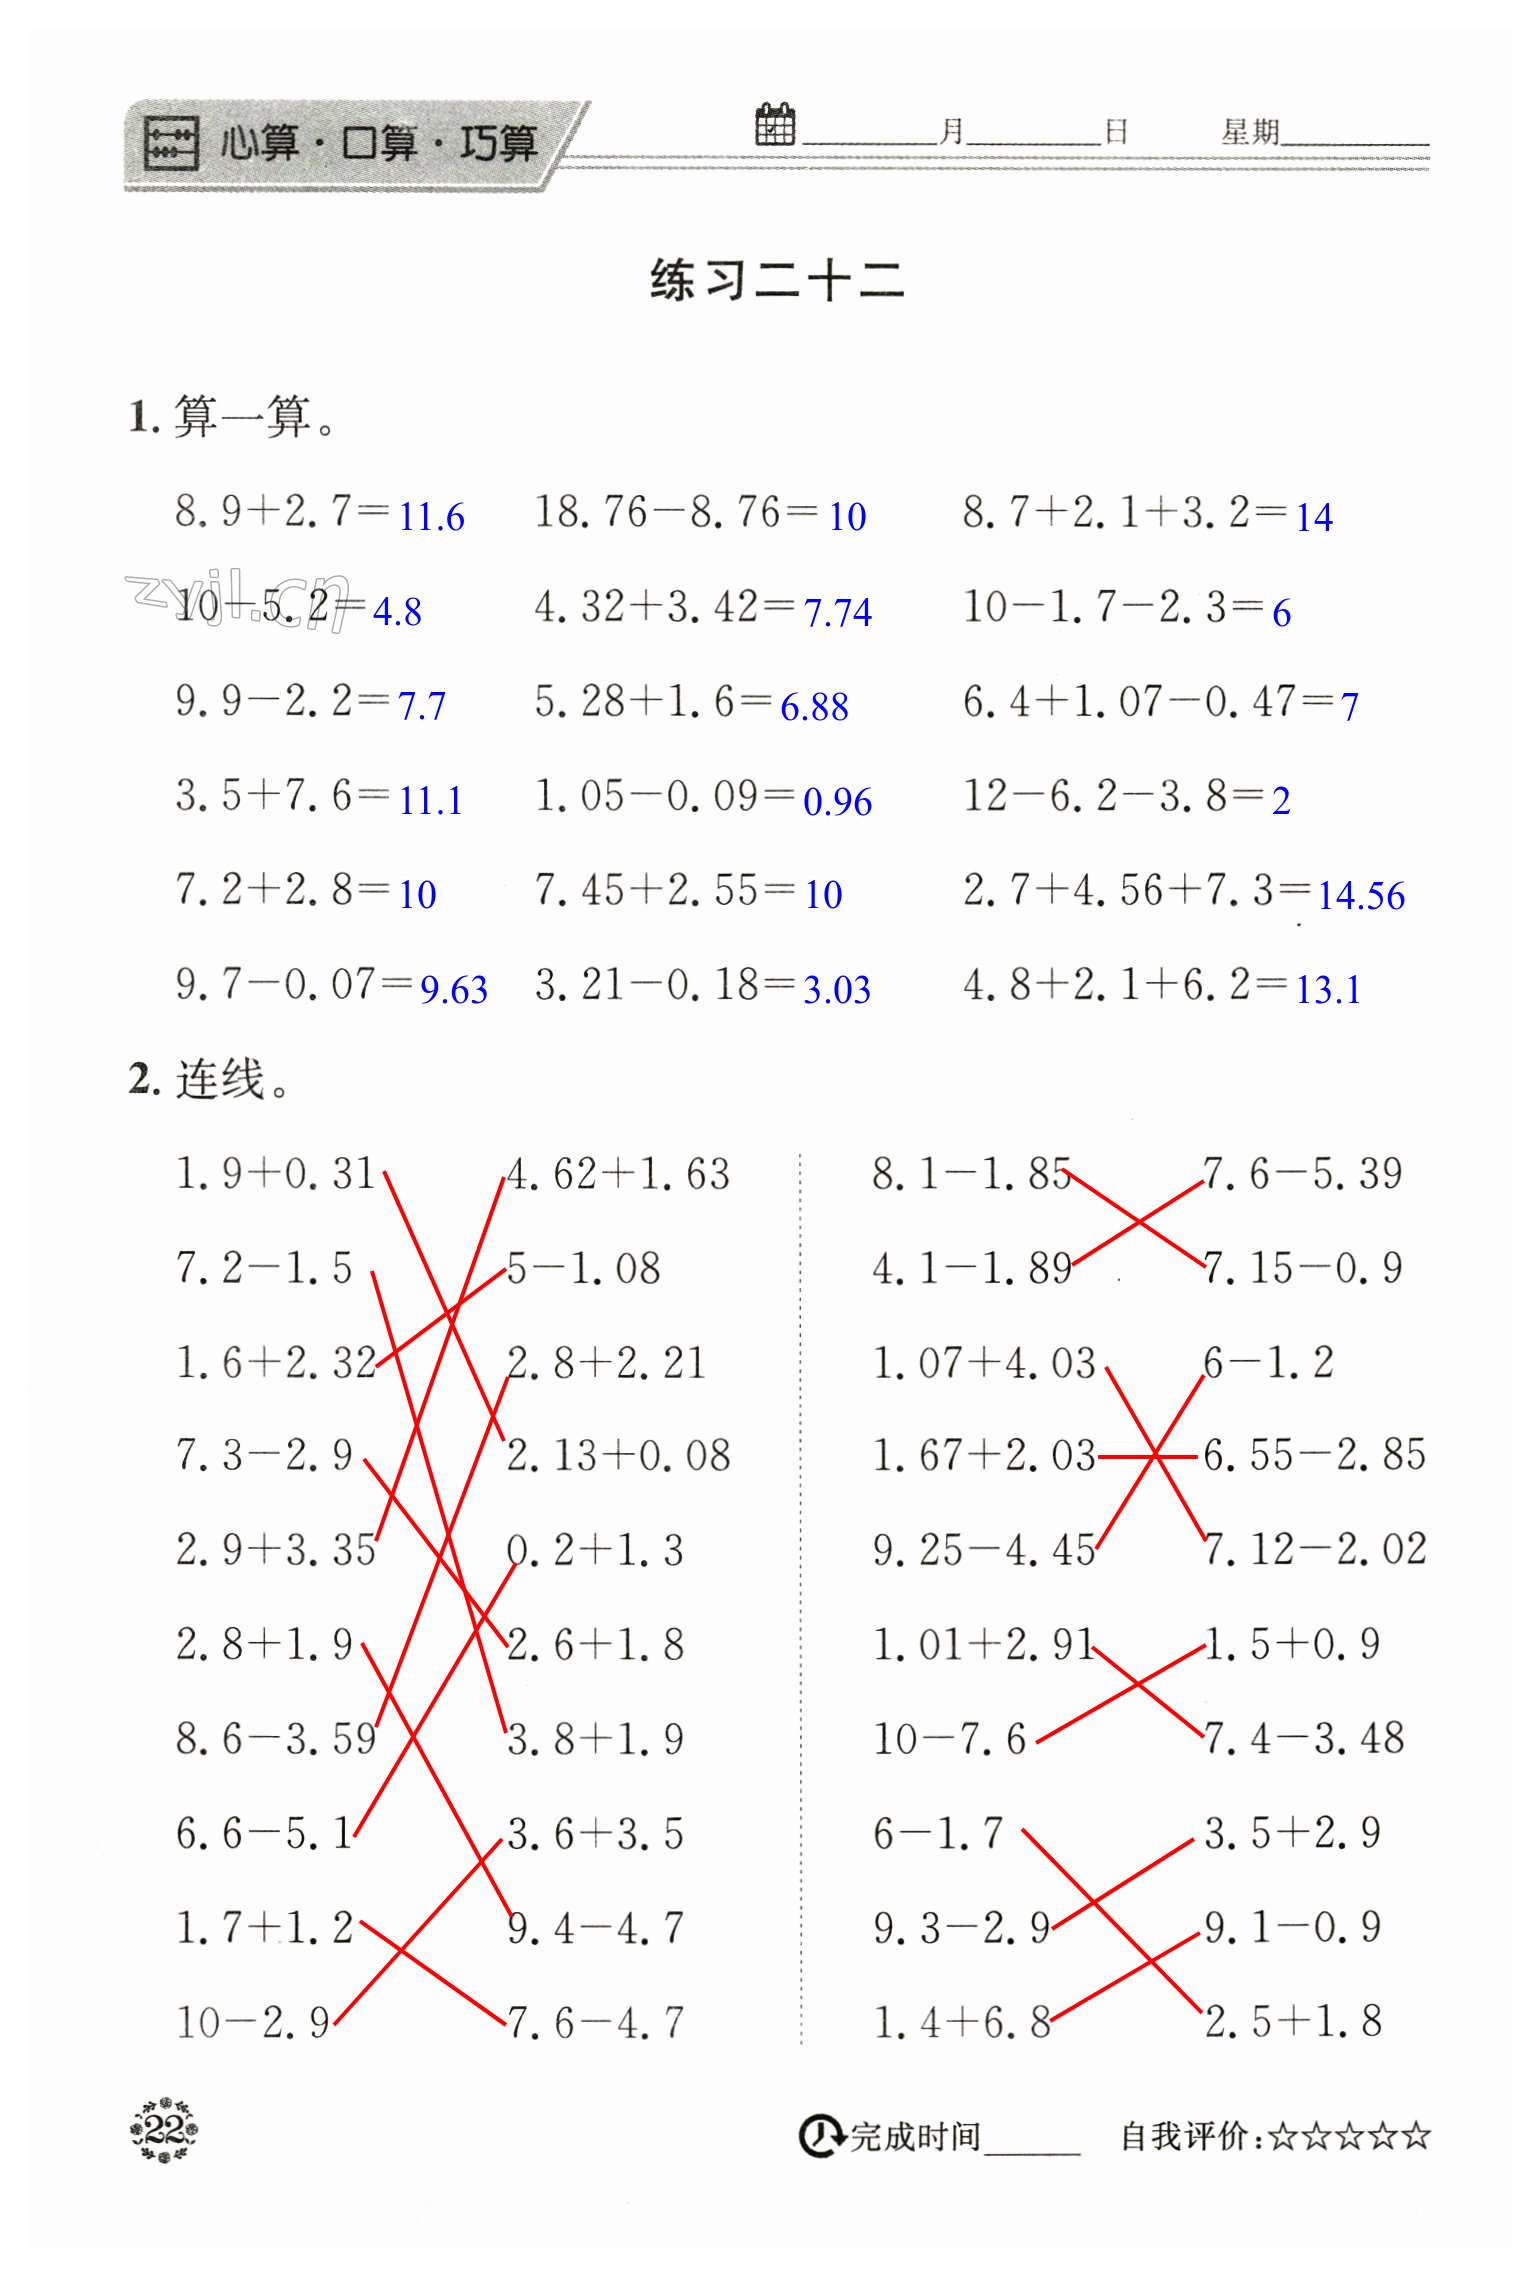 心算·口算·巧算 月 日 星期
练习二十二
1. 算一算。
8.9+2.7=11.6 18.76-8.76=10 8.7+2.1+3.2=14
zyjl.cn
10-5.2=4.8 4.32+3.42=7.74 10-1.7-2.3=6
9.9-2.2=7.7 5.28+1.6=6.88 6.4+1.07-0.47=7
3.5+7.6=11.1 1.05-0.09=0.96 12-6.2-3.8=2
7.2+2.8=10 7.45+2.55=10 2.7+4.56+7.3=14.56
9.7-0.07=9.63 3.21-0.18=3.03 4.8+2.1+6.2=13.1
2. 连线。
1.9+0.31 4.62+1.63 8.1-1.85 7.6-5.39
7.2-1.5 5-1.08 4.1-1.89 7.15-0.9
1.6+2.32 2.8+2.21 1.07+4.03 6-1.2
7.3-2.9 2.13+0.08 1.67+2.03 6.55-2.85
2.9+3.35 0.2+1.3 9.25-4.45 7.12-2.02
2.8+1.9 2.6+1.8 1.01+2.91 1.5+0.9
8.6-3.59 3.8+1.9 10-7.6 7.4-3.48
6.6-5.1 3.6+3.5 6-1.7 3.5+2.9
1.7+1.2 9.4-4.7 9.3-2.9 9.1-0.9
10-2.9 7.6-4.7 1.4+6.8 2.5+1.8
22 完成时间 自我评价:☆☆☆☆☆